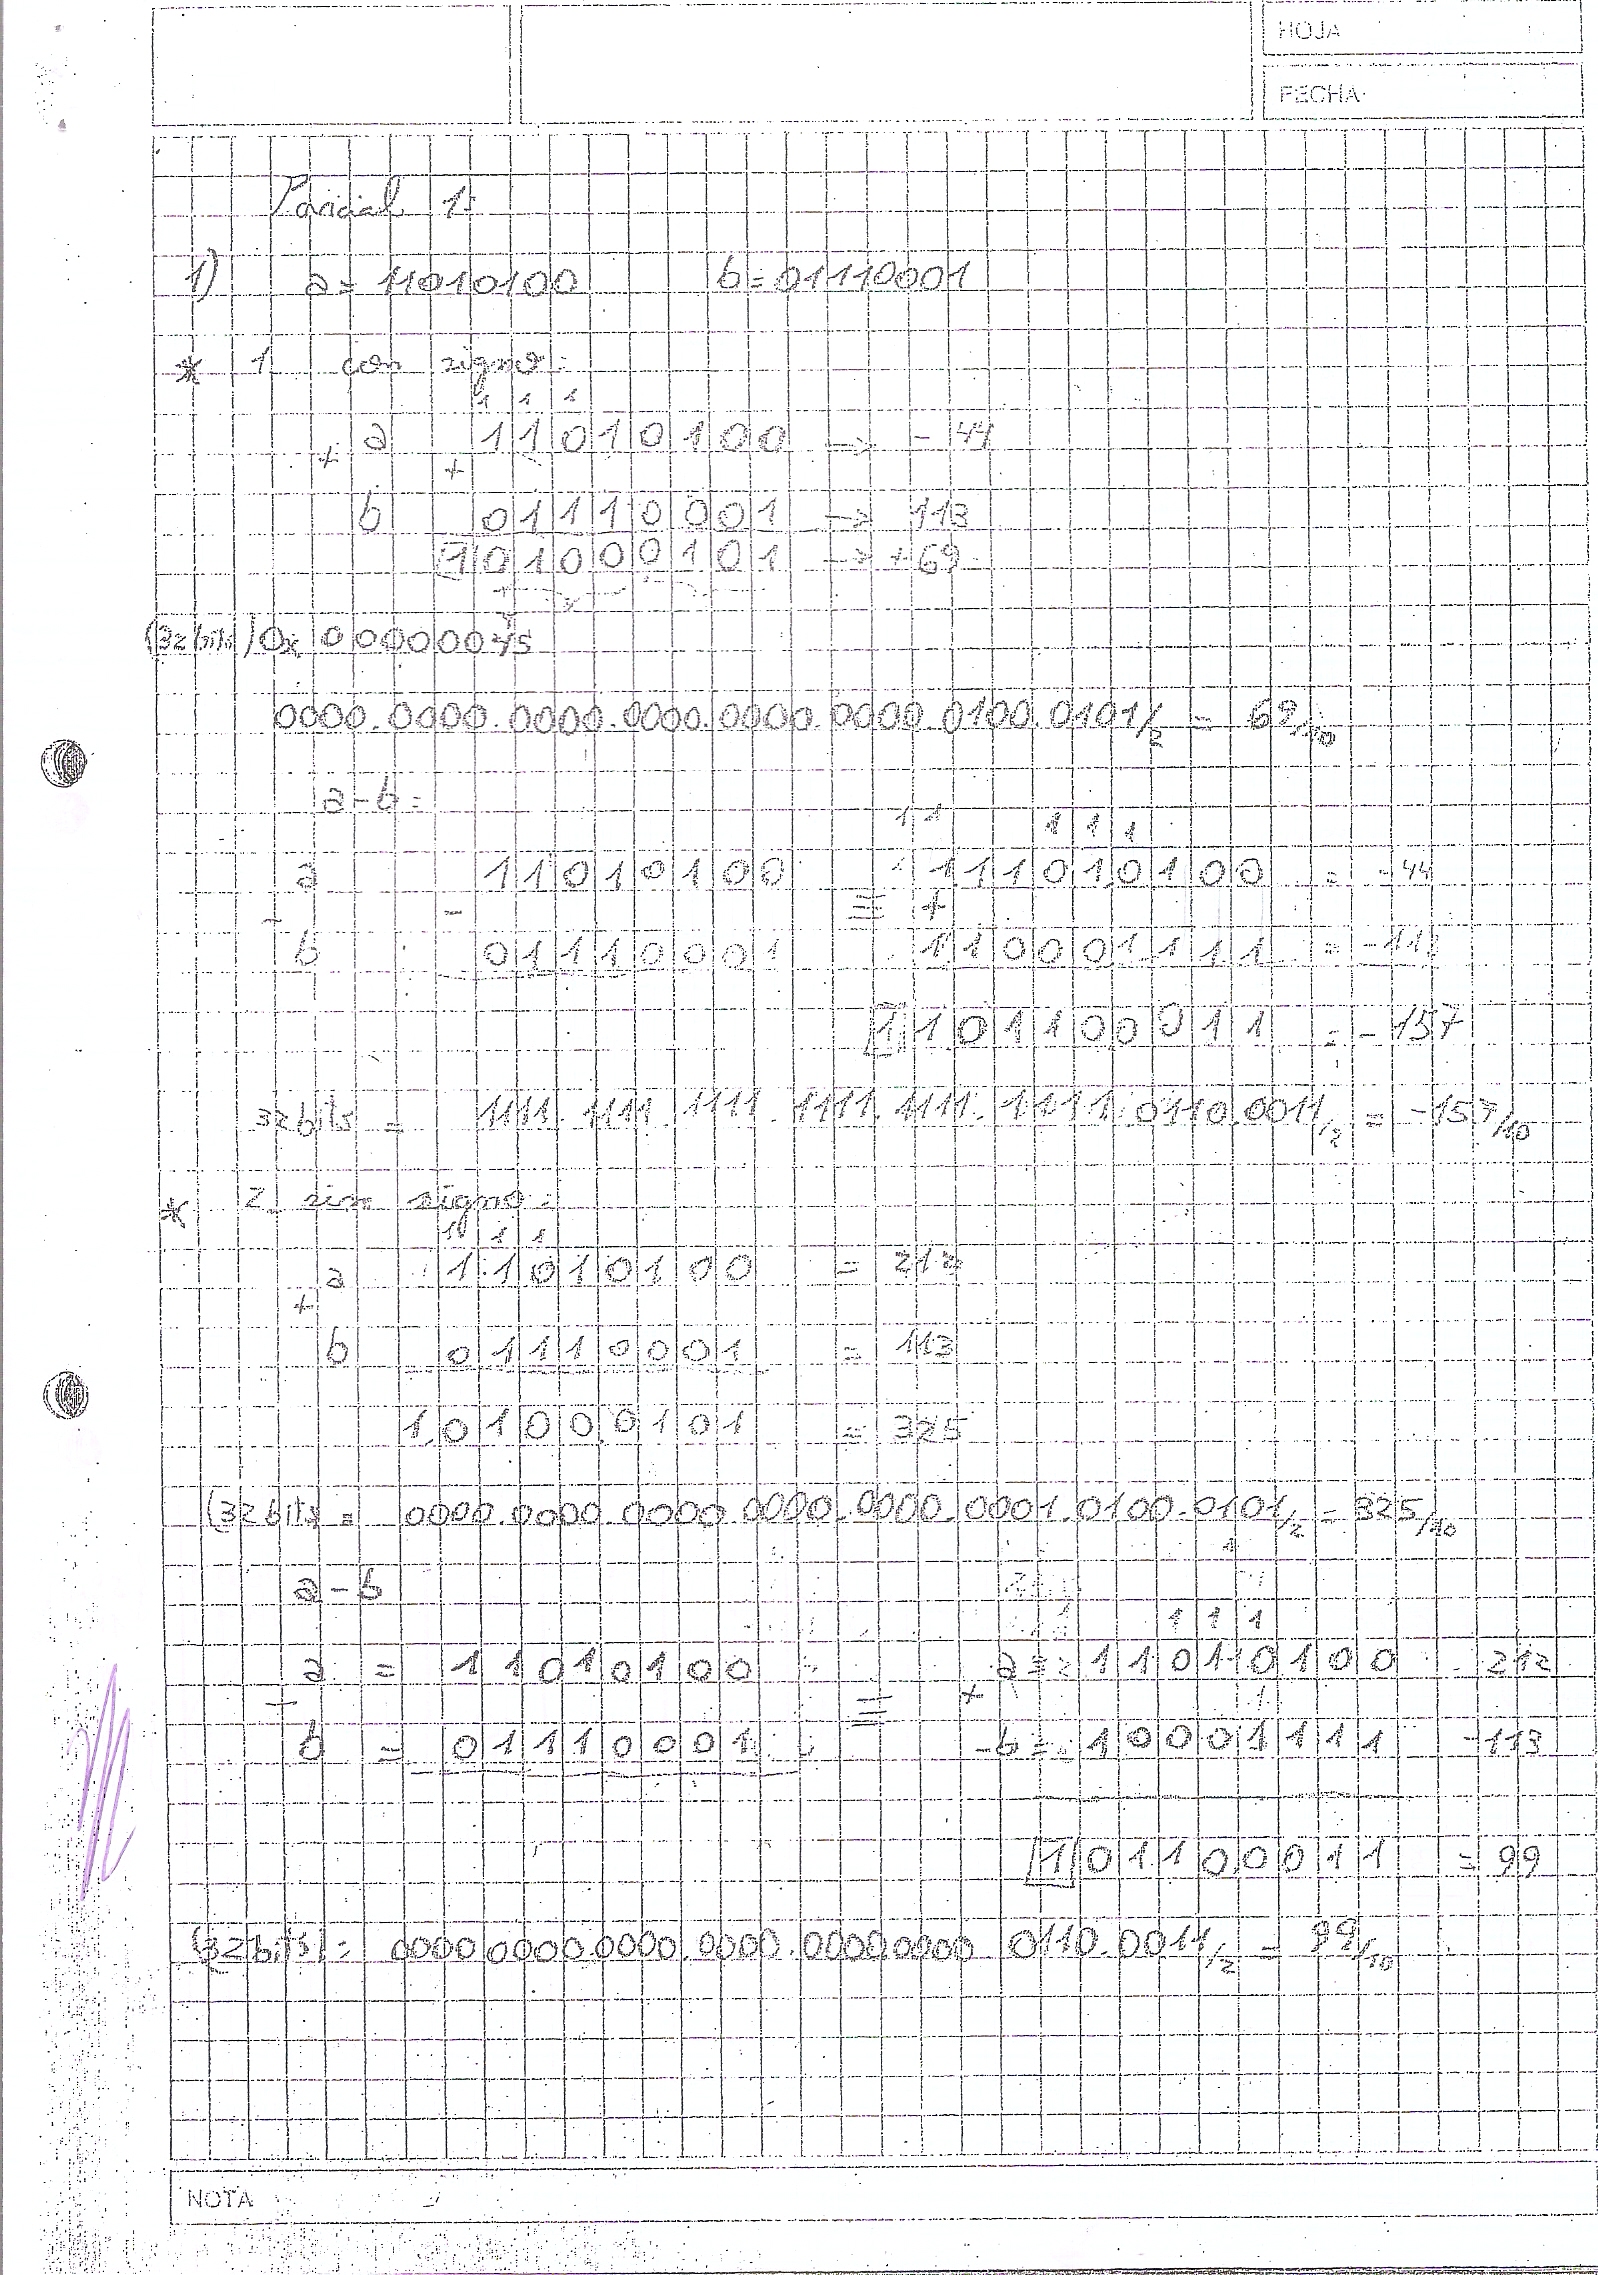 HOJA
FECHA
Parcial 1:
1) a = 11010100 b = 01110001
* 1 con signo:
1 1 1
+ a + 11010100 → - 44
b 01110001 → 113
1 01000101 → + 69
(32 bits) 0x 00000045
0000.0000.0000.0000.0000.0000.0100.0101/2 = 69/10
a-b =
1 1 1 1 1
a 11010100 111010100 = -44
- - ≡ +
b 01110001 110001111 = -113
1 101100011 = -157
32 bits = 1111.1111.1111.1111.1111.1111.0110.0011/2 = -157/10
* 2 sin signo:
1 1 1
a 11010100 = 212
+
b 01110001 = 113
101000101 = 325
(32 bits = 0000.0000.0000.0000.0000.0001.0100.0101/2 = 325/10
a-b
1 1 1
a = 11010100 a = 11010100 212
- ≡ +
b = 01110001 -b = 10001111 -113
1 01100011 = 99
(32 bits) = 0000 0000.0000.0000.0000.0000 0110.0011/2 = 99/10
NOTA